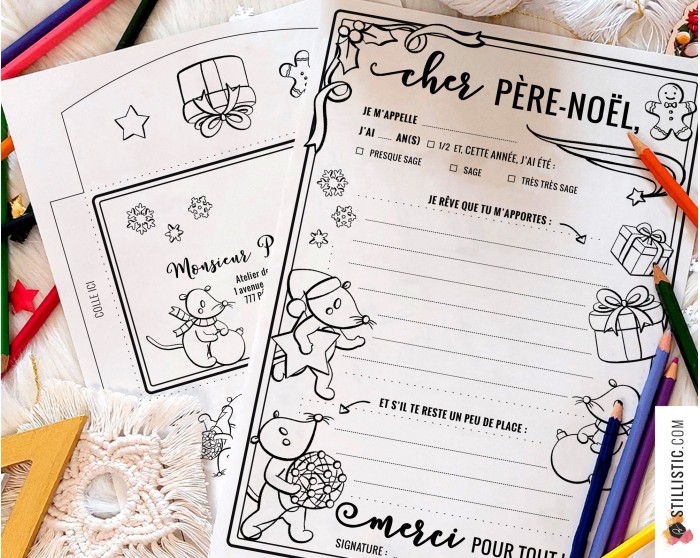 COLLE ICI
Monsieur
Atelier de
1 avenue
777
cher PÈRE-NOËL,
JE M'APPELLE
J'AI ...... AN(S) ☐ 1/2 ET, CETTE ANNÉE, J'AI ÉTÉ :
☐ PRESQUE SAGE ☐ SAGE ☐ TRÈS TRÈS SAGE
JE RÊVE QUE TU M'APPORTES :
ET S'IL TE RESTE UN PEU DE PLACE :
merci POUR TOUT !
SIGNATURE :
STILLISTIC.COM